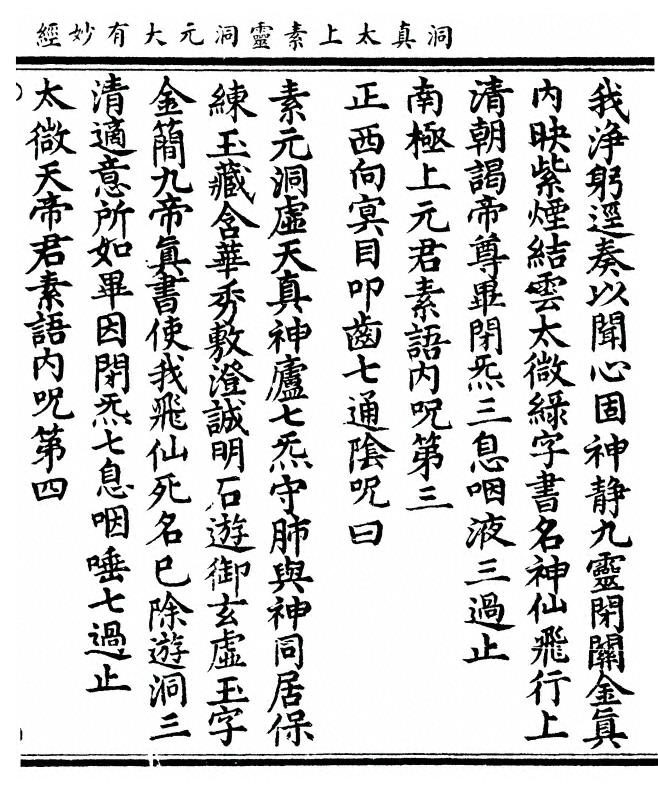 洞真太上素靈洞元大有妙經
我淨躬逕奏以聞心固神靜九靈閉關金真
内映紫煙結雲太微綠字書名神仙飛行上
清朝謁帝尊畢閉炁三息咽液三過止
南極上元君素語内呪第三
正西向㝠目叩齒七通陰呪曰
素元洞虛天真神廬七炁守肺與神同居保
練玉藏含華秀敷澄誠明石遊御玄虛玉字
金簡九帝真書使我飛仙死名已除遊洞三
清適意所如畢因閉炁七息咽唾七過止
太微天帝君素語内呪第四